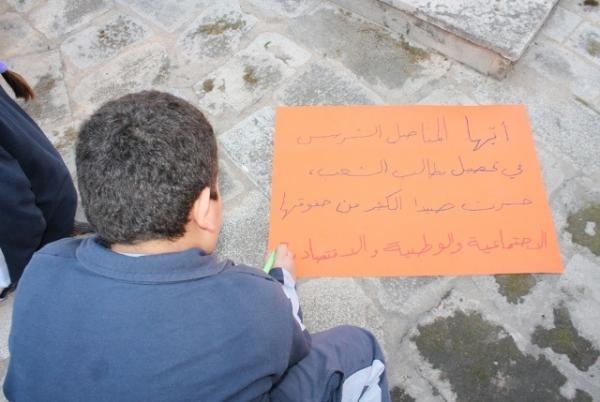 أيّها المناضل الشرس
في تحصيل مطالب الشعب،
خسرت صيدا الكثير من حقوقها
الاجتماعية والوطنية والاقتصادية